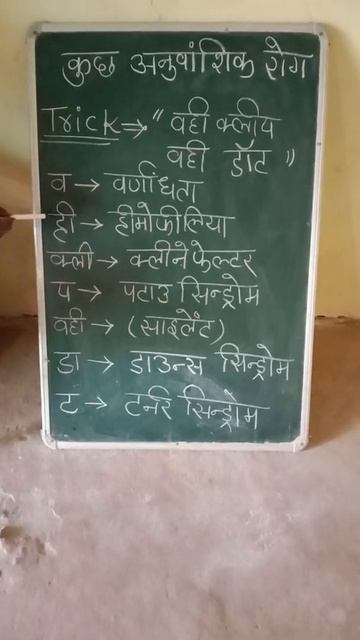 कुछ अनुवांशिक रोग
Trick ⇒ " वही क्लीप
वही डॉट "
व → वर्णांधता
ही → हीमोफीलिया
क्ली → क्लीनेफेल्टर
प → पटाउ सिन्ड्रोम
वही → (साइलेंट)
डा → डाउन्स सिन्ड्रोम
ट → टर्नर सिन्ड्रोम